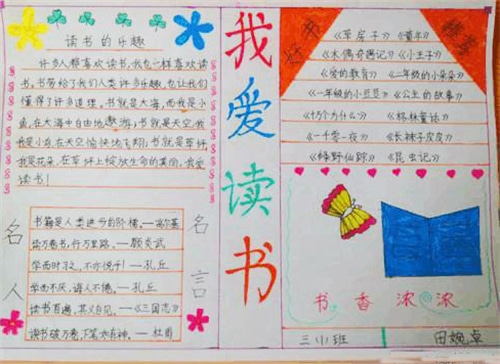 读书的乐趣
许多人都喜欢读书,我也一样喜欢读
书。书带给了我们人类许多乐趣,也让我们
懂得了许多道理。书就是大海,而我是小
鱼,在大海中自由地遨游;书就是天空,我
是小鸟,在天空愉快地飞翔;书就是草坪
我是花朵,在草坪上绽放生命的美丽,我爱
读书!
名人
名言
书籍是人类进步的阶梯。—高尔基
读万卷书,行万里路。—顾炎武
学而时习之,不亦悦乎!—孔丘
学而不厌,诲人不倦。—孔丘
读书百遍,其义自见。—《三国志》
读书破万卷,下笔如有神。—杜甫
我爱读书
好书
推荐
《草房子》《童年》
《木偶奇遇记》《小王子》
《爱的教育》《二年级的小朵朵》
《一年级的小豆豆》《公主的故事》
《十万个为什么》《格林童话》
《一千零一夜》《长袜子皮皮》
《绿野仙踪》《昆虫记》
书香浓浓
三(1)班
田婉卓